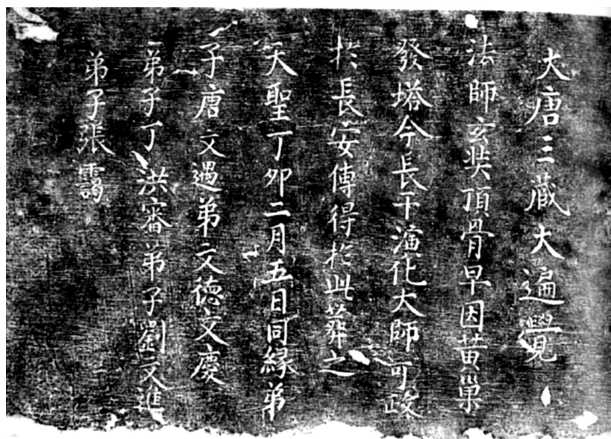 大唐三藏大遍覺
法師玄奘頂骨早因黃巢
發塔今長干演化大師可政
於長安傳得於此葬之
天聖丁卯二月五日同緣弟
子唐文遇弟文德文慶
弟子丁洪審弟子劉文進
弟子張靄